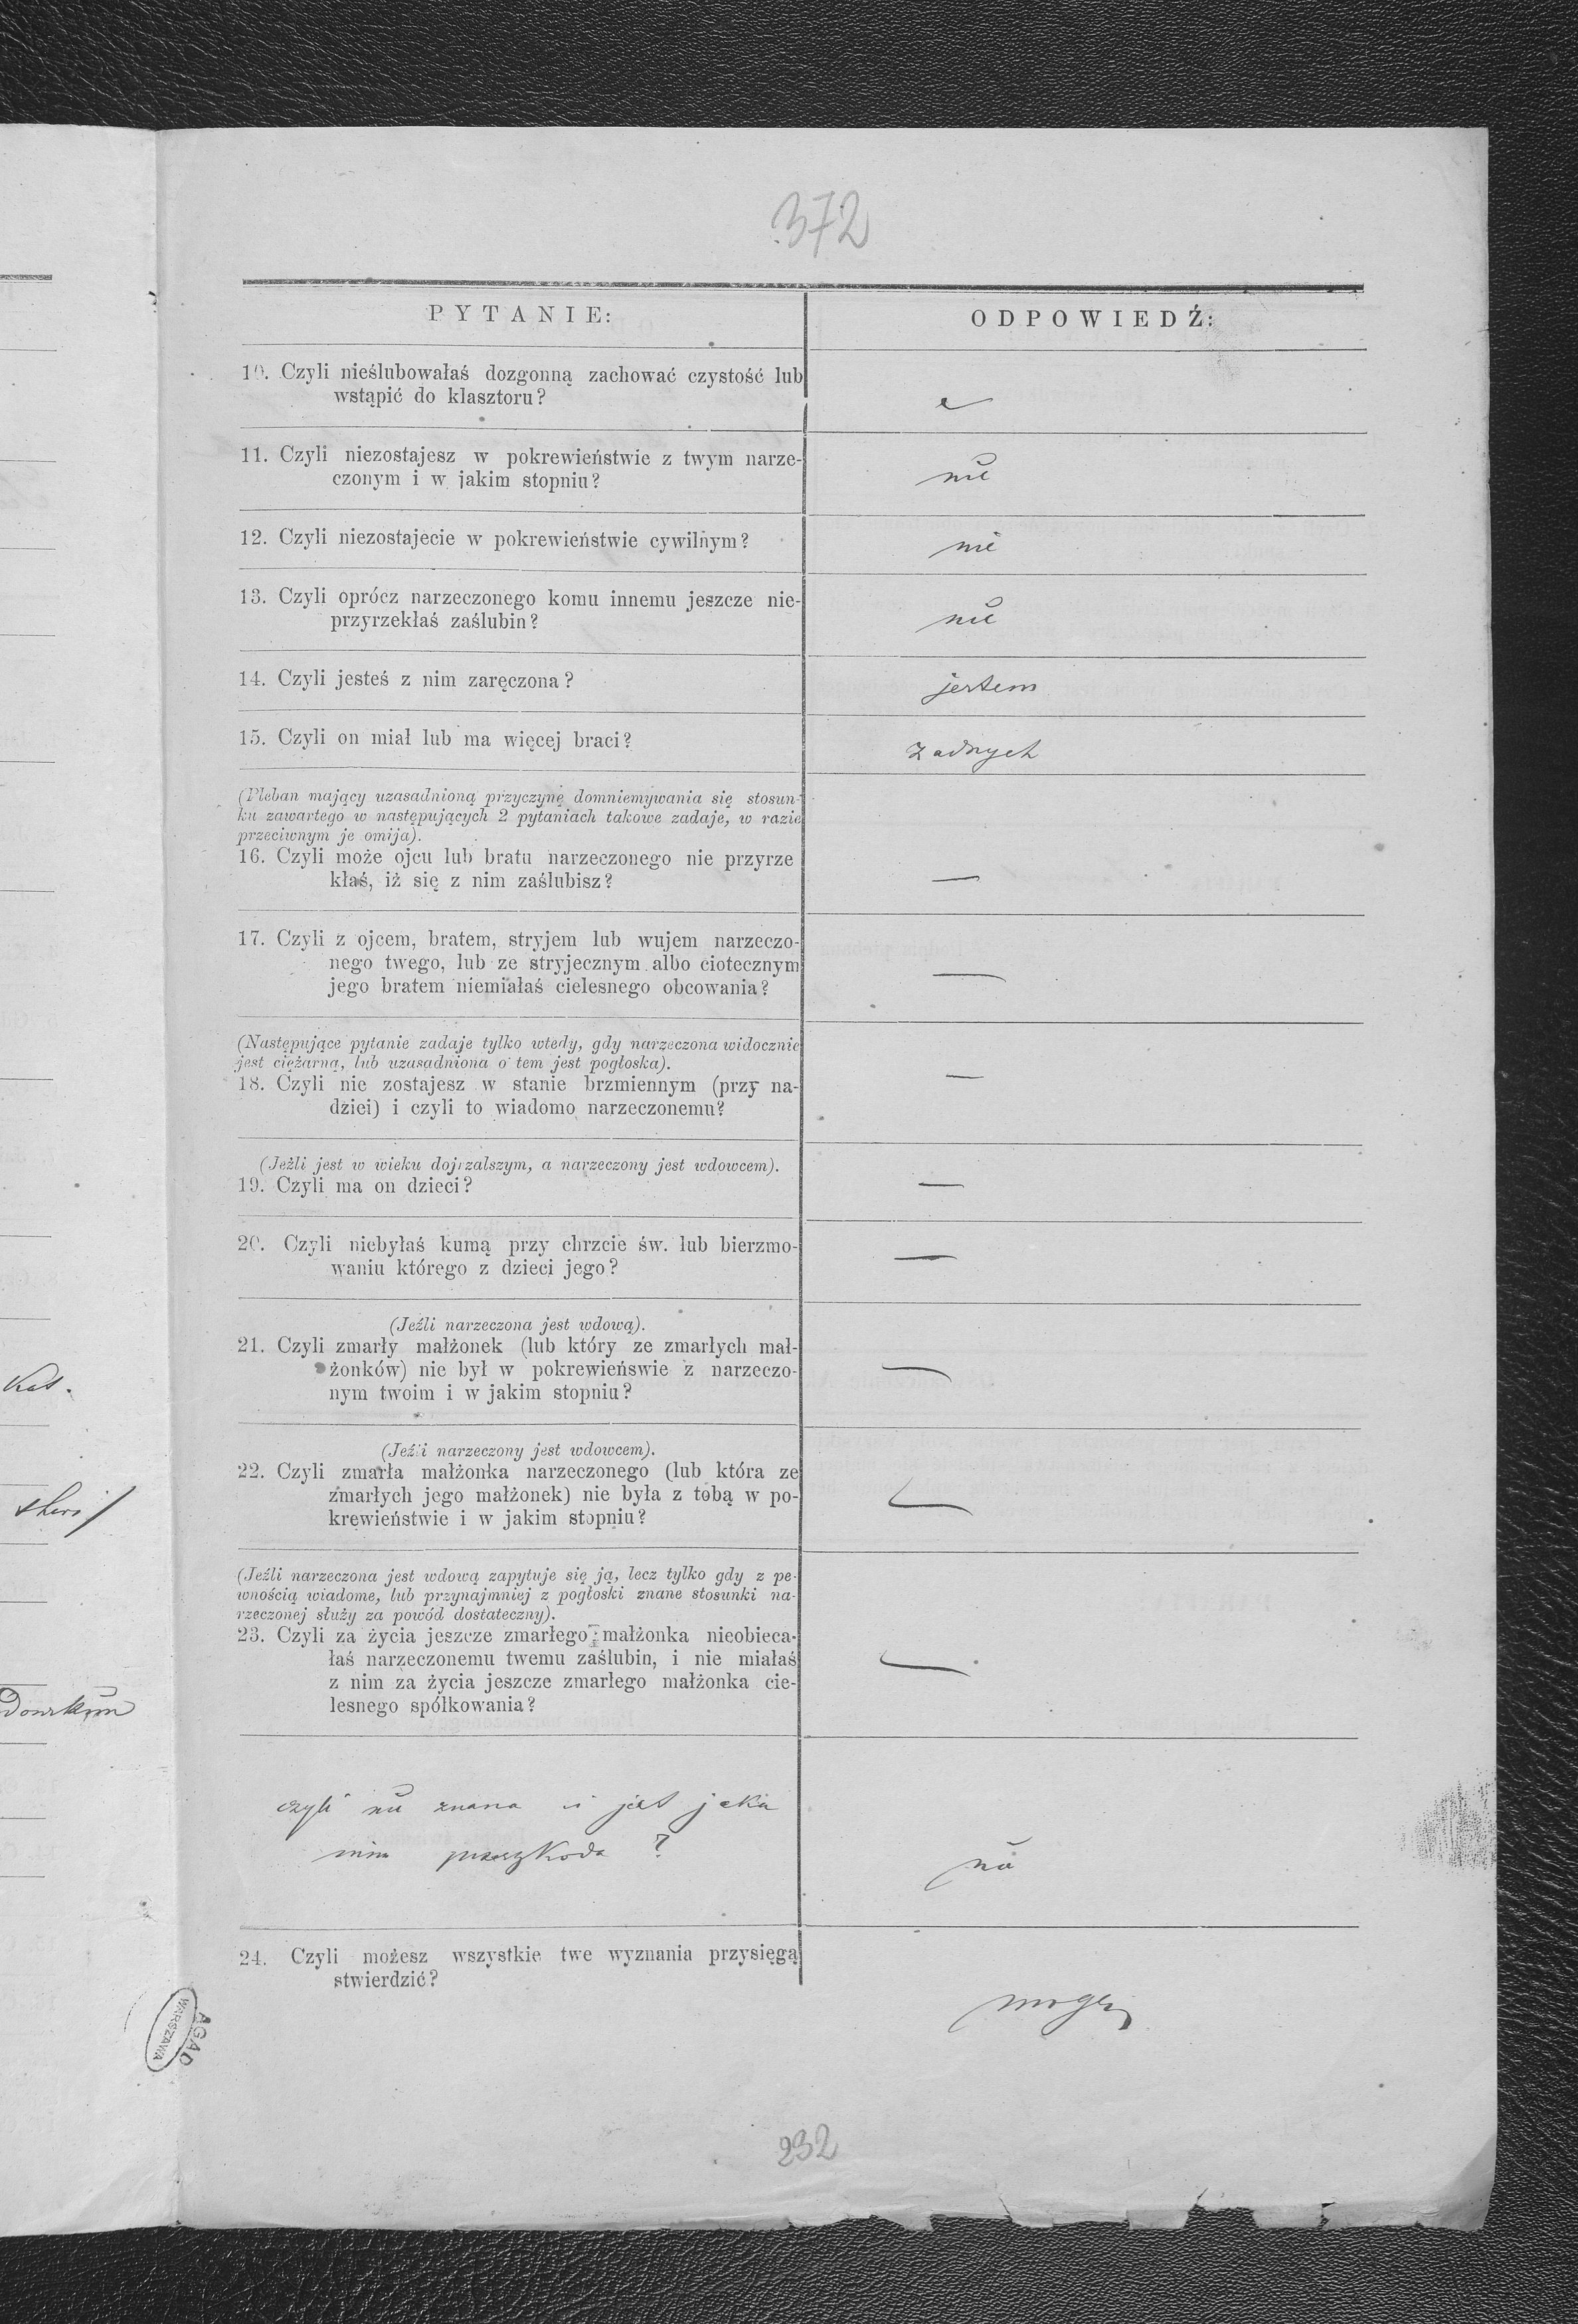 372
PYTANIE:
ODPOWIEDŹ:
10. Czyli nieślubowałaś dozgonną zachować czystość lub
wstąpić do klasztoru?
11. Czyli niezostajesz w pokrewieństwie z twym narze-
czonym i w jakim stopniu?
nie
12. Czyli niezostajecie w pokrewieństwie cywilnym?
nie
13. Czyli oprócz narzeczonego komu innemu jeszcze nie-
przyrzekłaś zaślubin?
nie
14. Czyli jesteś z nim zaręczona?
jestem
15. Czyli on miał lub ma więcej braci?
żadnych
(Pleban mający uzasadnioną przyczynę domniemywania się stosun-
ku zawartego w następujących 2 pytaniach takowe zadaje, w razie
przeciwnym je omija).
16. Czyli może ojcu lub bratu narzeczonego nie przyrze
kłaś, iż się z nim zaślubisz?
—
17. Czyli z ojcem, bratem, stryjem lub wujem narzeczo-
nego twego, lub ze stryjecznym albo ciotecznym
jego bratem niemiałaś cielesnego obcowania?
—
(Następujące pytanie zadaje tylko wtedy, gdy narzeczona widocznie
jest ciężarną, lub uzasadniona o tem jest pogłoska).
18. Czyli nie zostajesz w stanie brzmiennym (przy na-
dziei) i czyli to wiadomo narzeczonemu?
—
(Jeźli jest w wieku dojrzalszym, a narzeczony jest wdowcem).
19. Czyli ma on dzieci?
—
20. Czyli niebyłaś kumą przy chrzcie św. lub bierzmo-
waniu którego z dzieci jego?
—
(Jeźli narzeczona jest wdową).
21. Czyli zmarły małżonek (lub który ze zmarłych mał-
żonków) nie był w pokrewieńswie z narzeczo-
nym twoim i w jakim stopniu?
—
(Jeźli narzeczony jest wdowcem).
22. Czyli zmarła małżonka narzeczonego (lub która ze
zmarłych jego małżonek) nie była z tobą w po-
krewieństwie i w jakim stopniu?
—
(Jeźli narzeczona jest wdową zapytuje się ją, lecz tylko gdy z pe-
wnością wiadome, lub przynajmniej z pogłoski znane stosunki na-
rzeczonej służy za powód dostateczny).
23. Czyli za życia jeszcze zmarłego małżonka nieobieca-
łaś narzeczonemu twemu zaślubin, i nie miałaś
z nim za życia jeszcze zmarłego małżonka cie-
lesnego spółkowania?
—
czyli nie znana ci jest jaka
inna przeszkoda?
nie
24. Czyli możesz wszystkie twe wyznania przysięgą
stwierdzić?
mogę
AGAD
WARSZAWA
232
kat.